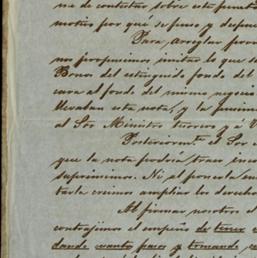 na de contestar, sobre este punto
motivo por qué se puso y despues
Para, arreglar
nos propusimos imitar lo que se
Bonos del estinguido fondo del
cara al fondo del mismo negocio
llevaban esta nota, y la
al Sor Ministro
Posteriormte. el Sor
que la nota podria traer
suprimimos. Ni al ponerla,
tarla creimos ampliar los derechos
Al firmar nosotros el
contrajimos el compromiso de tener
dando cuanto pasos y tomando